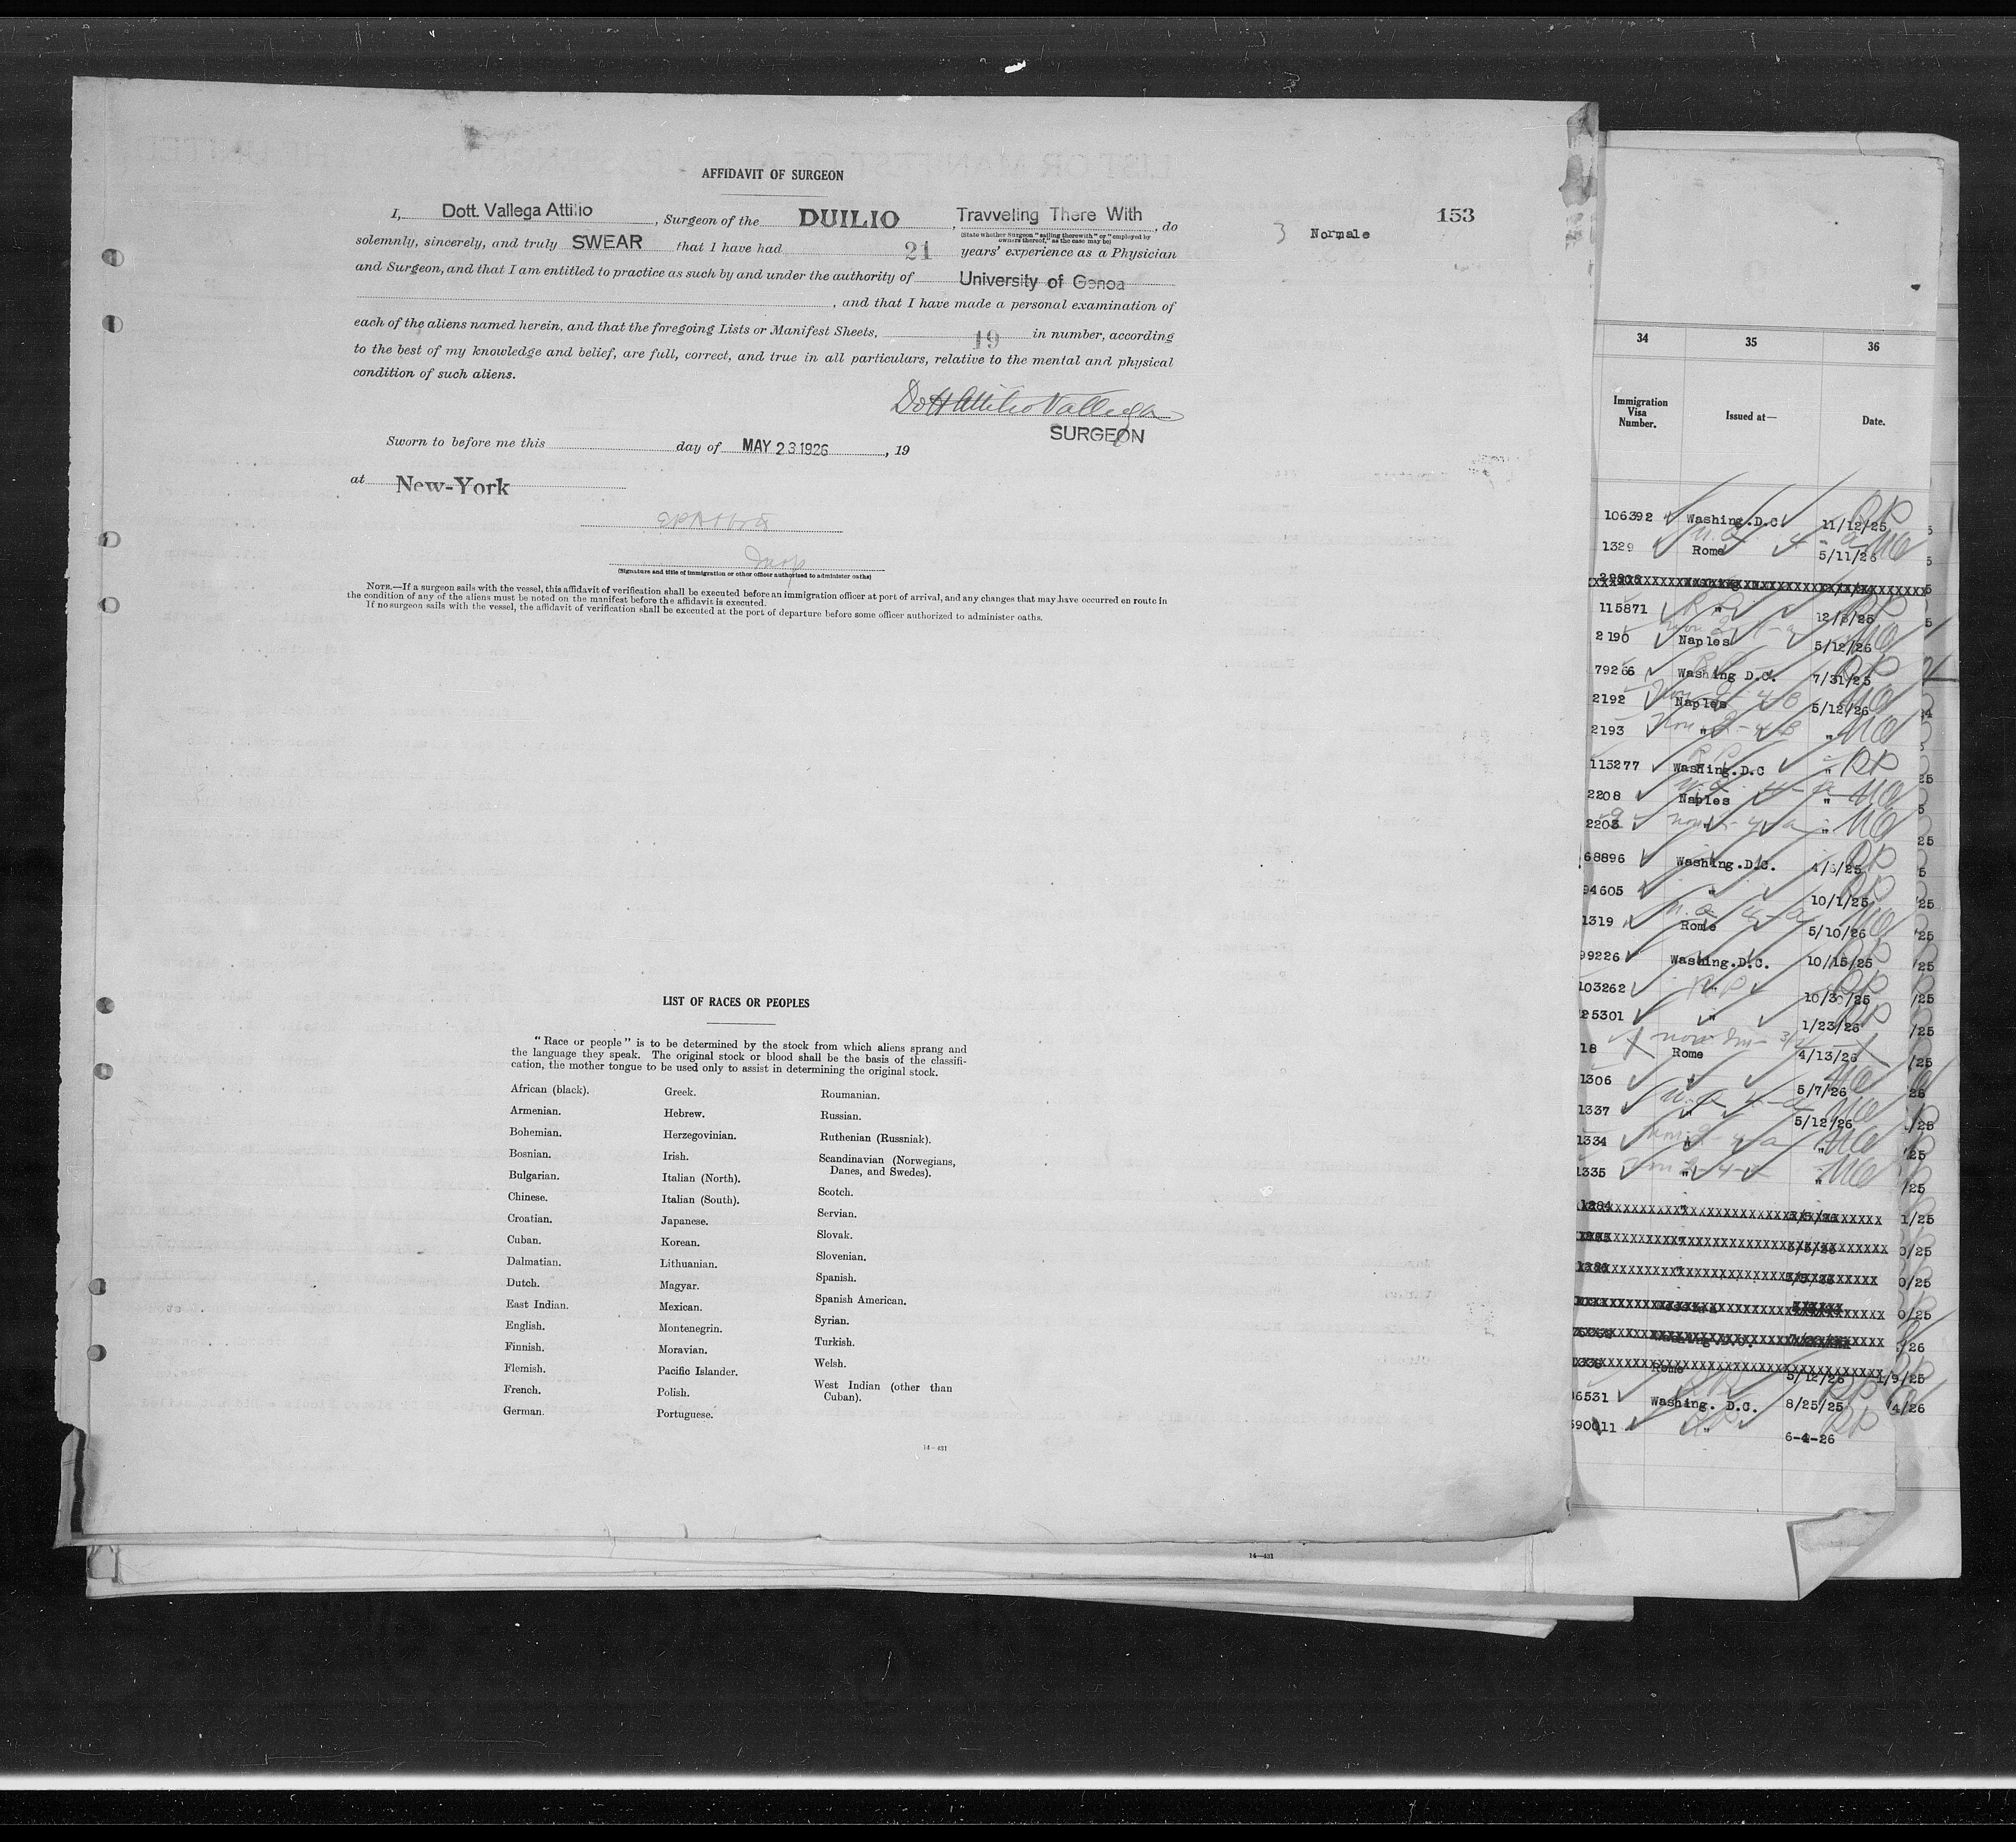 AFFIDAVIT OF SURGEON
I, Dott. Vallega Attilio, Surgeon of the DUILIO, Travveling There With, do
(State whether Surgeon "sailing therewith" or "employed by owners thereof," as the case may be)
solemnly, sincerely, and truly SWEAR that I have had 21 years' experience as a Physician
and Surgeon, and that I am entitled to practice as such by and under the authority of University of Genoa
, and that I have made a personal examination of
each of the aliens named herein, and that the foregoing Lists or Manifest Sheets, 19 in number, according
to the best of my knowledge and belief, are full, correct, and true in all particulars, relative to the mental and physical
condition of such aliens.
Dott Attilio Vallega
SURGEON
Sworn to before me this day of MAY 23 1926, 19
at New-York
(Signature and title of immigration or other officer authorized to administer oaths)
NOTE.—If a surgeon sails with the vessel, this affidavit of verification shall be executed before an immigration officer at port of arrival, and any changes that may have occurred en route in
the condition of any of the aliens must be noted on the manifest before the affidavit is executed.
If no surgeon sails with the vessel, the affidavit of verification shall be executed at the port of departure before some officer authorized to administer oaths.
3 Normale
153
LIST OF RACES OR PEOPLES
"Race or people" is to be determined by the stock from which aliens sprang and
the language they speak. The original stock or blood shall be the basis of the classifi-
cation, the mother tongue to be used only to assist in determining the original stock.
African (black).
Armenian.
Bohemian.
Bosnian.
Bulgarian.
Chinese.
Croatian.
Cuban.
Dalmatian.
Dutch.
East Indian.
English.
Finnish.
Flemish.
French.
German.
Greek.
Hebrew.
Herzegovinian.
Irish.
Italian (North).
Italian (South).
Japanese.
Korean.
Lithuanian.
Magyar.
Mexican.
Montenegrin.
Moravian.
Pacific Islander.
Polish.
Portuguese.
Roumanian.
Russian.
Ruthenian (Russniak).
Scandinavian (Norwegians,
Danes, and Swedes).
Scotch.
Servian.
Slovak.
Slovenian.
Spanish.
Spanish American.
Syrian.
Turkish.
Welsh.
West Indian (other than
Cuban).
14—431
14—431
34 35 36
Immigration
Visa
Number.
Issued at—
Date.
106392 Washing.D.C 11/12/25
1329 Rome 5/11/26
115871 " 12/8/25
2190 Naples 5/12/26
79266 Washing D.C. 7/31/25
2192 Naples 5/12/26
2193 " "
113277 Washing.D.C "
2208 Naples "
2203 "
68896 Washing.D.C. 4/6/25
94605 " 10/1/25
1319 Rome 5/10/26
99226 Washing.D.C. 10/15/25
103262 " 10/30/25
25301 " 1/23/26
18 Rome 4/13/26
1306 " 5/7/26
1337 " 5/12/26
1334 " "
1335 " "
Rome 5/12/26
6531 Washing. D.C. 8/25/25
90011 " 6-4-26